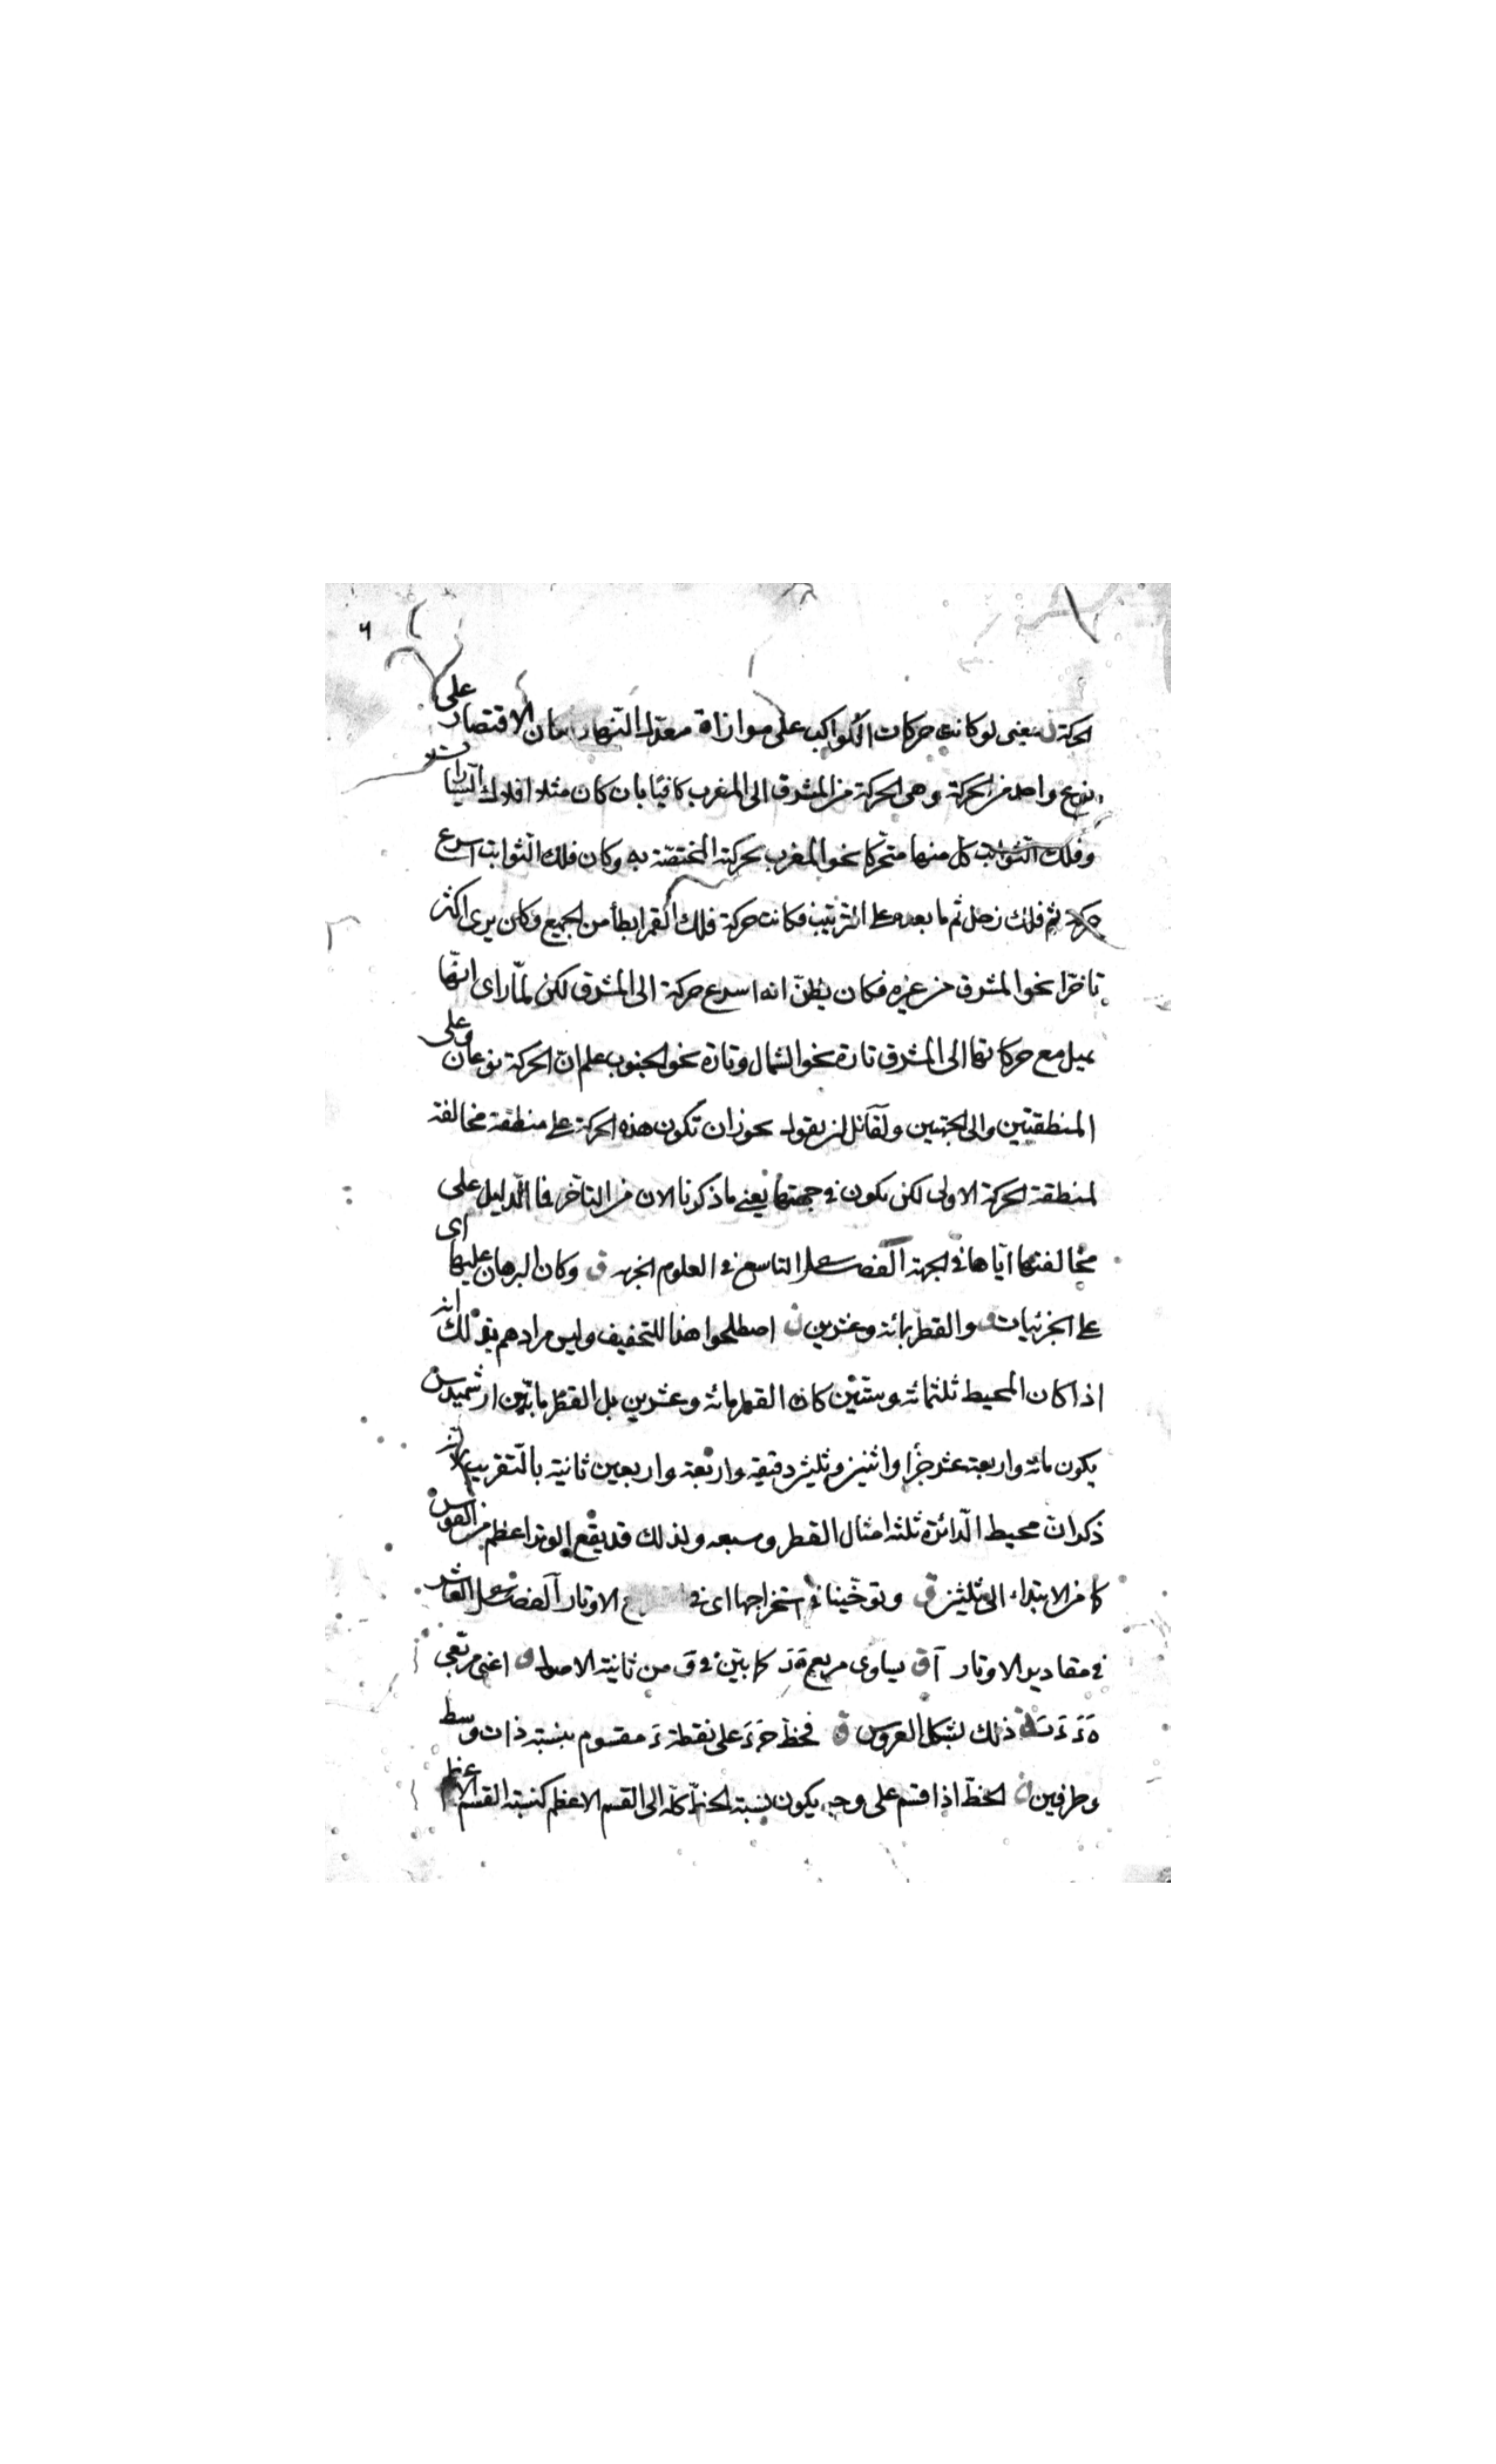 ٦
الحركة ن يعنى لو كانت حركات الكواكب على موازاة معدل النهار كان الاقتصار على
نوع واحد من الحركة وهى الحركة من المشرق الى المغرب كافيا بان كان مثلا افلاك السيارات
وفلك الثوابت كل منها متحركا نحو المغرب بحركته المختصة به وكان فلك الثوابت اسرع
حركة ثم فلك زحل ثم ما بعده على الترتيب فكانت حركة فلك القمر ابطأ من الجميع وكان يرى اكثر
تاخرا نحو المشرق من غيره فكان يظن انه اسرع حركة الى المشرق لكن لما راى انها
تميل مع حركاتها الى المشرق تارة نحو الشمال وتارة نحو الجنوب علم ان الحركة نوعان وعلى
المنطقتين والى الجهتين ولقائل ان يقول يجوز ان تكون هذه الحركة على منطقة مخالفة
لمنطقة الحركة الاولى لكن يكون فى جهتها يعنى ما ذكرنا الان من التاخر فما الدليل على
مخالفتها اياها فى الجهة الفصل التاسع فى العلوم الجزئية ق وكان البرهان عليها اى
على الجزئيات ق والقطر بمائة وعشرين ن اصطلحوا هذا للتخفيف وليس مرادهم بذلك انه
اذا كان المحيط ثلثمائة وستين كان القطر مائة وعشرين بل القطر ما بين ارشميدس
يكون مائة واربعة عشر جزأ واثنين وثلثين دقيقة واربعة واربعين ثانية بالتقريب لانه
ذكر ان محيط الدائرة ثلثة امثال القطر وسبعه ولذلك قد يقع الوتر اعظم من القوس
كما من الابتداء الى ثلثين ق وتوخينا فى استخراجها اى فى الاوتار الفصل العاشر
فى مقادير الاوتار آ ق يساوى مربع ه ز كما بين فى و من ثانية الاصول ق اعنى مربعى
ذلك بشكل العروس ق فخط ح ء على نقطة ء مقسوم بنسبة ذات وسط
وطرفين ن الخط اذا قسم على وجه يكون نسبة الخط كله الى القسم الاعظم كنسبة القسم الاعظم